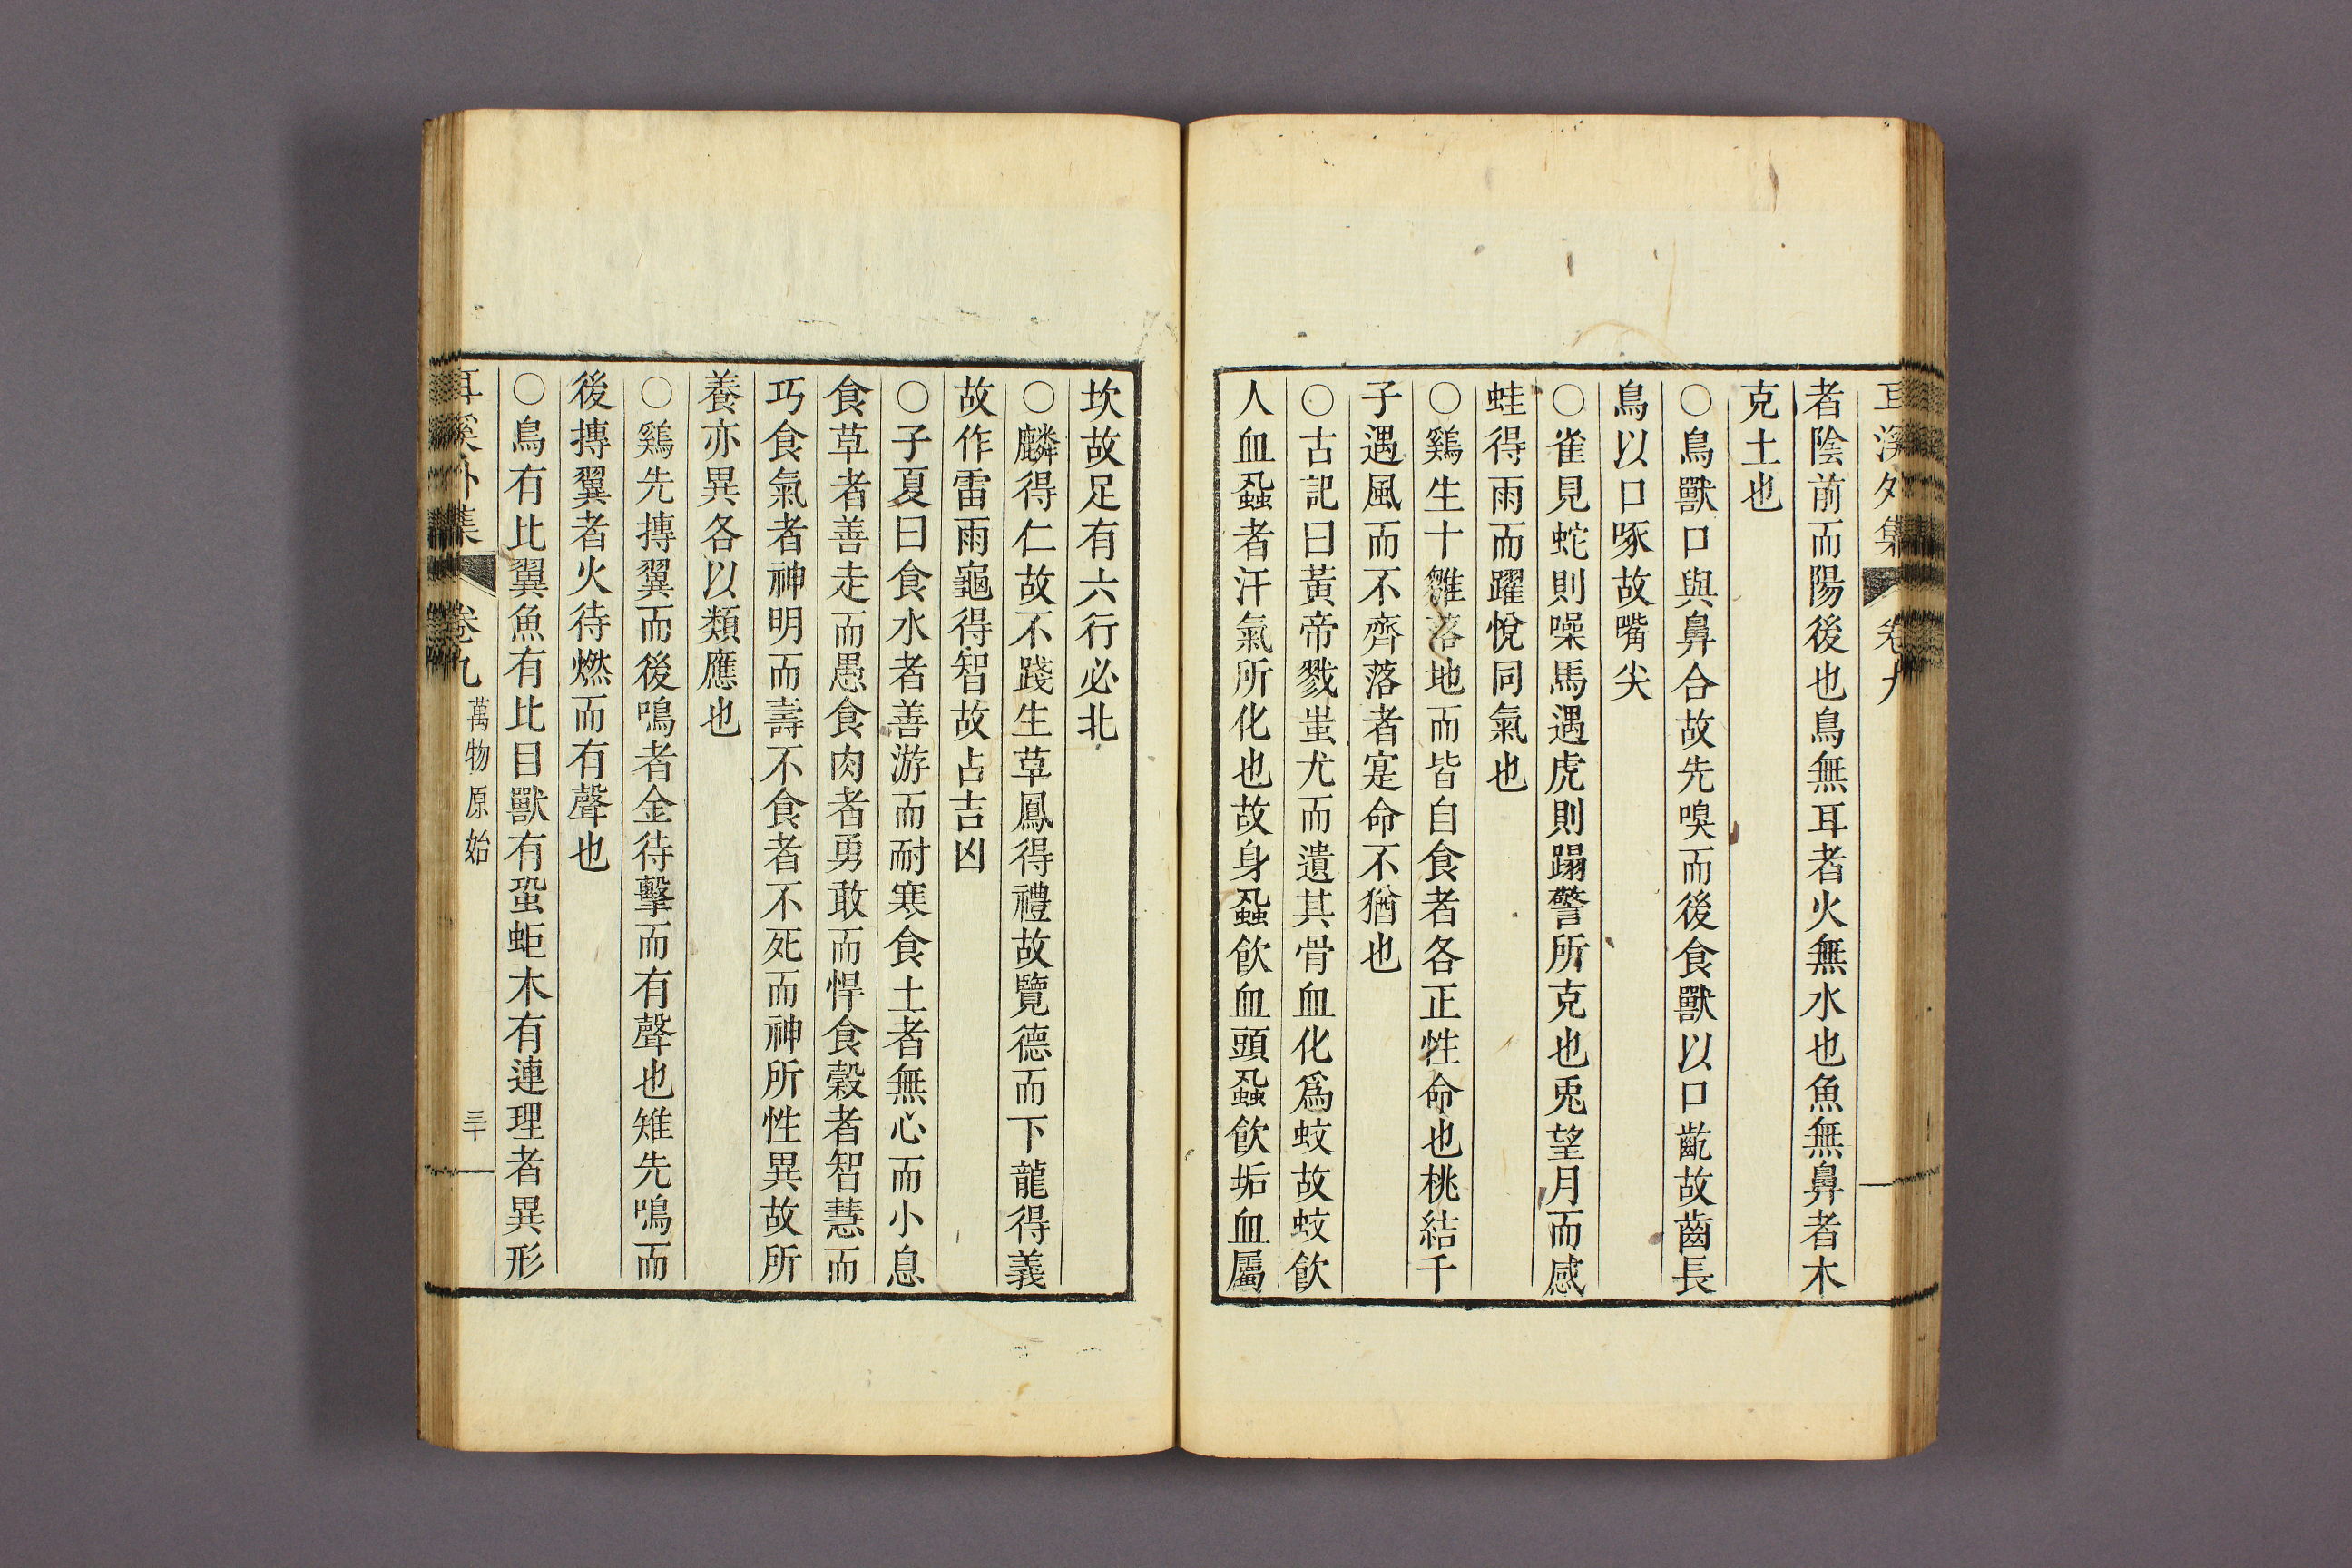 耳溪外集 卷九
者陰前而陽後也鳥無耳者火無水也魚無鼻者木
克土也
○鳥獸口與鼻合故先嗅而後食獸以口齕故齒長
鳥以口啄故嘴尖
○雀見蛇則噪馬遇虎則蹋警所克也兎望月而感
蛙得雨而躍悅同氣也
○鷄生十雛落地而皆自食者各正性命也桃結千
子遇風而不齊落者寔命不猶也
○古記曰黃帝戮蚩尤而遺其骨血化爲蚊故蚊飮
人血蝨者汗氣所化也故身蝨飮血頭蝨飮垢血屬
坎故足有六行必北
○麟得仁故不踐生草鳳得禮故覽德而下龍得義
故作雷雨龜得智故占吉凶
○子夏曰食水者善游而耐寒食土者無心而小息
食草者善走而愚食肉者勇敢而悍食穀者智慧而
巧食氣者神明而壽不食者不死而神所性異故所
養亦異各以類應也
○鷄先摶翼而後鳴者金待擊而有聲也雉先鳴而
後摶翼者火待燃而有聲也
○鳥有比翼魚有比目獸有蛩蚷木有連理者異形
耳溪外集 卷九 萬物原始 三十